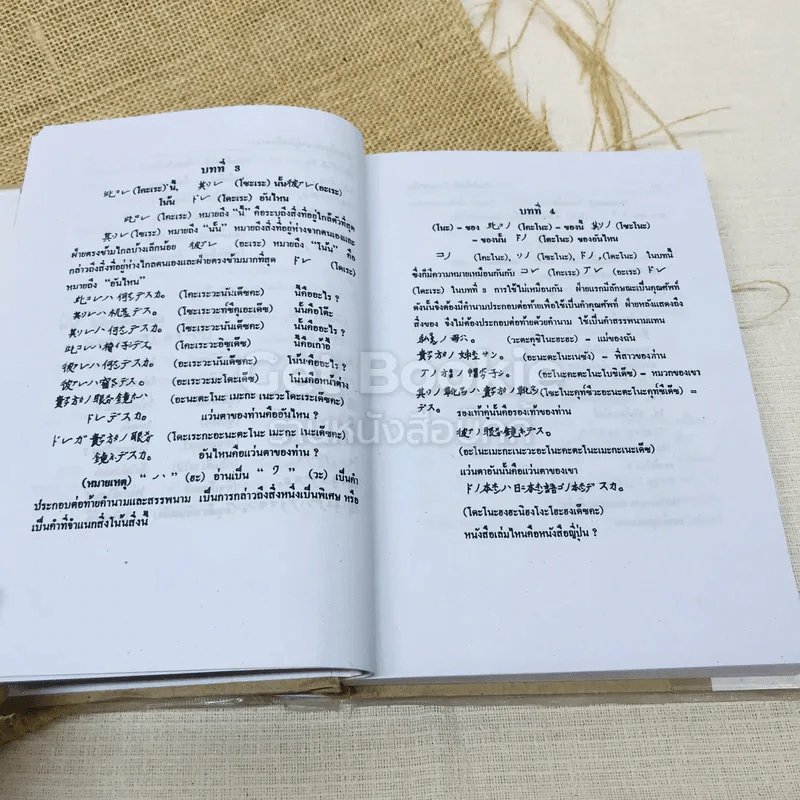 บทที่ 3
此コレ (โคะเระ) นี้, 其ソレ (โซะเระ) นั้น 彼アレ (อะเระ)
โน้น ドレ (โดะเระ) อันไหน
此コレ (โคะเระ) หมายถึง "นี้" คือระบุถึงสิ่งที่อยู่ใกล้ตัวที่สุด
其ソレ (โซะเระ) หมายถึง "นั้น" หมายถึงสิ่งที่อยู่ห่างจากตนเองและ
ฝ่ายตรงข้ามไกลบ้างเล็กน้อย 彼アレ (อะเระ) หมายถึง "โน้น" คือ
กล่าวถึงสิ่งที่อยู่ห่างไกลตนเองและฝ่ายตรงข้ามมากที่สุด ドレ (โดะเระ)
หมายถึง "อันไหน"
此コレハ何デスカ。 (โคะเระวะนันเด๊ซคะ) นี้คืออะไร ?
其ソレハ机デス。 (โซะเระวะทซึคุเอะเด๊ซ) นั้นคือโต๊ะ
其ソレハ何デスカ。 (โซะเระวะนันเด๊ซคะ) นั้นคืออะไร ?
此コレハ椅子デス。 (โคะเระวะอิซุเด๊ซ) นี้คือเก้าอี้
彼アレハ何デスカ。 (อะเระวะนันเด๊ซคะ) โน้นคืออะไร ?
彼アレハ窓デス。 (อะเระวะมะโดะเด๊ซ) โน้นคือหน้าต่าง
貴方ノ眼鏡ハ (อะนะตะโนะ เมะกะ เนะวะโดะเระเด๊ซคะ)
ドレデスカ。 แว่นตาของท่านคืออันไหน ?
ドレガ貴方ノ眼 (โดะเระกะอะนะตะโนะ เมะกะ เนะเด๊ซคะ)
鏡デスカ。 อันไหนคือแว่นตาของท่าน ?
(หมายเหตุ) "ハ" (ฮะ) อ่านเป็น "ワ" (วะ) เป็นคำ
ประกอบต่อท้ายคำนามและสรรพนาม เป็นการกล่าวถึงสิ่งหนึ่งเป็นพิเศษ หรือ
เป็นคำที่จำแนกสิ่งโน้นสิ่งนี้
บทที่ 4
(โนะ) - ของ 此コノ (โคะโนะ) - ของนี้ 其ソノ (โซะโนะ)
- ของนั้น ドノ (โดะโนะ) ของอันไหน
コノ (โคะโนะ), ソノ (โซะโนะ), ドノ, (โดะโนะ) ในบทนี้
ซึ่งก็มีความหมายเหมือนกันกับ コレ (โคะเระ) アレ (อะเระ) ドレ
(โดะเระ) ในบทที่ 3 การใช้ไม่เหมือนกัน ฝ่ายแรกมีลักษณะเป็นคุณศัพท์
ดังนั้นจึงต้องมีคำนามประกอบต่อท้ายเพื่อใช้เป็นคำคุณศัพท์ ฝ่ายหลังแสดงถึง
สิ่งของ จึงไม่ต้องประกอบต่อท้ายด้วยคำนาม ใช้เป็นคำสรรพนามแทน
私ノ母 (วะตะกุชิโนะฮะฮะ) - แม่ของฉัน
貴方ノ姉サン。 (อะนะตะโนะเนะซัง) - พี่สาวของท่าน
ノ帽子 - หมวกของเขา
其ソノ靴ハ貴方ノ靴 =
デス。 รองเท้าคู่นั้นคือรองเท้าของท่าน
彼ノ眼鏡デス。
(อะโนะเมะกะเนะวะอะโนะคะตะโนะเมะกะเนะเด๊ซ)
แว่นตาอันนั้นคือแว่นตาของเขา
ドノ本ハ日本語ノ本デスカ。
(โดะโนะฮงฮะนิฮงโงะโนะฮงเด๊ซคะ)
หนังสือเล่มไหนคือหนังสือญี่ปุ่น ?